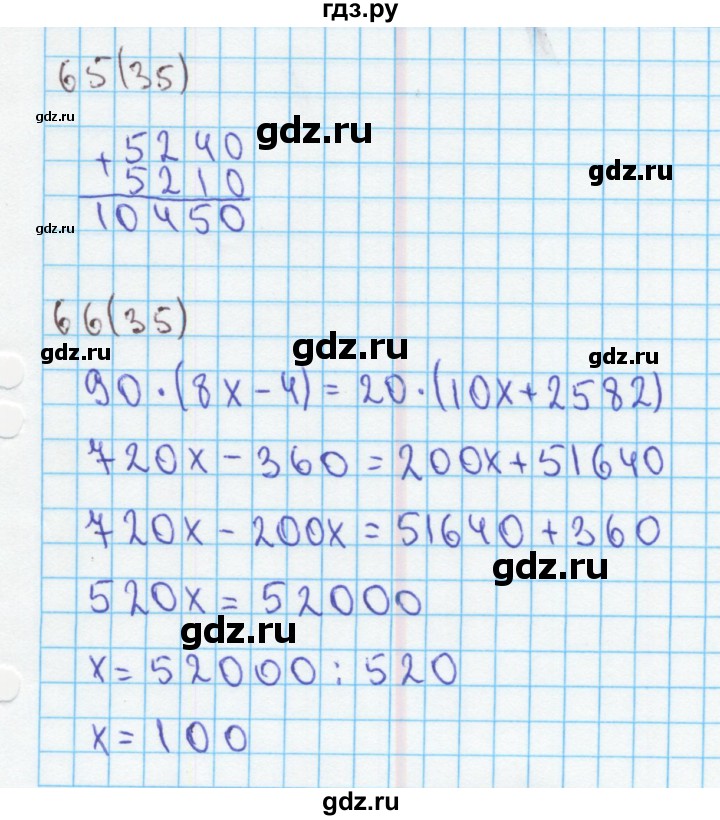 гдз.ру
65(35)
gdz.ru
gdz.ru
+ 5240
gdz.ru
5210
10450
gdz.ru
66(35)
gdz.ru
gdz.ru
gdz.ru
90·(8x-4)=20·(10x+2582)
720x-360=200x+51640
720x-200x=51640+360
gdz.ru
520x=52000
gdz.ru
x=52000:520
x=100
gdz.ru
gdz.ru